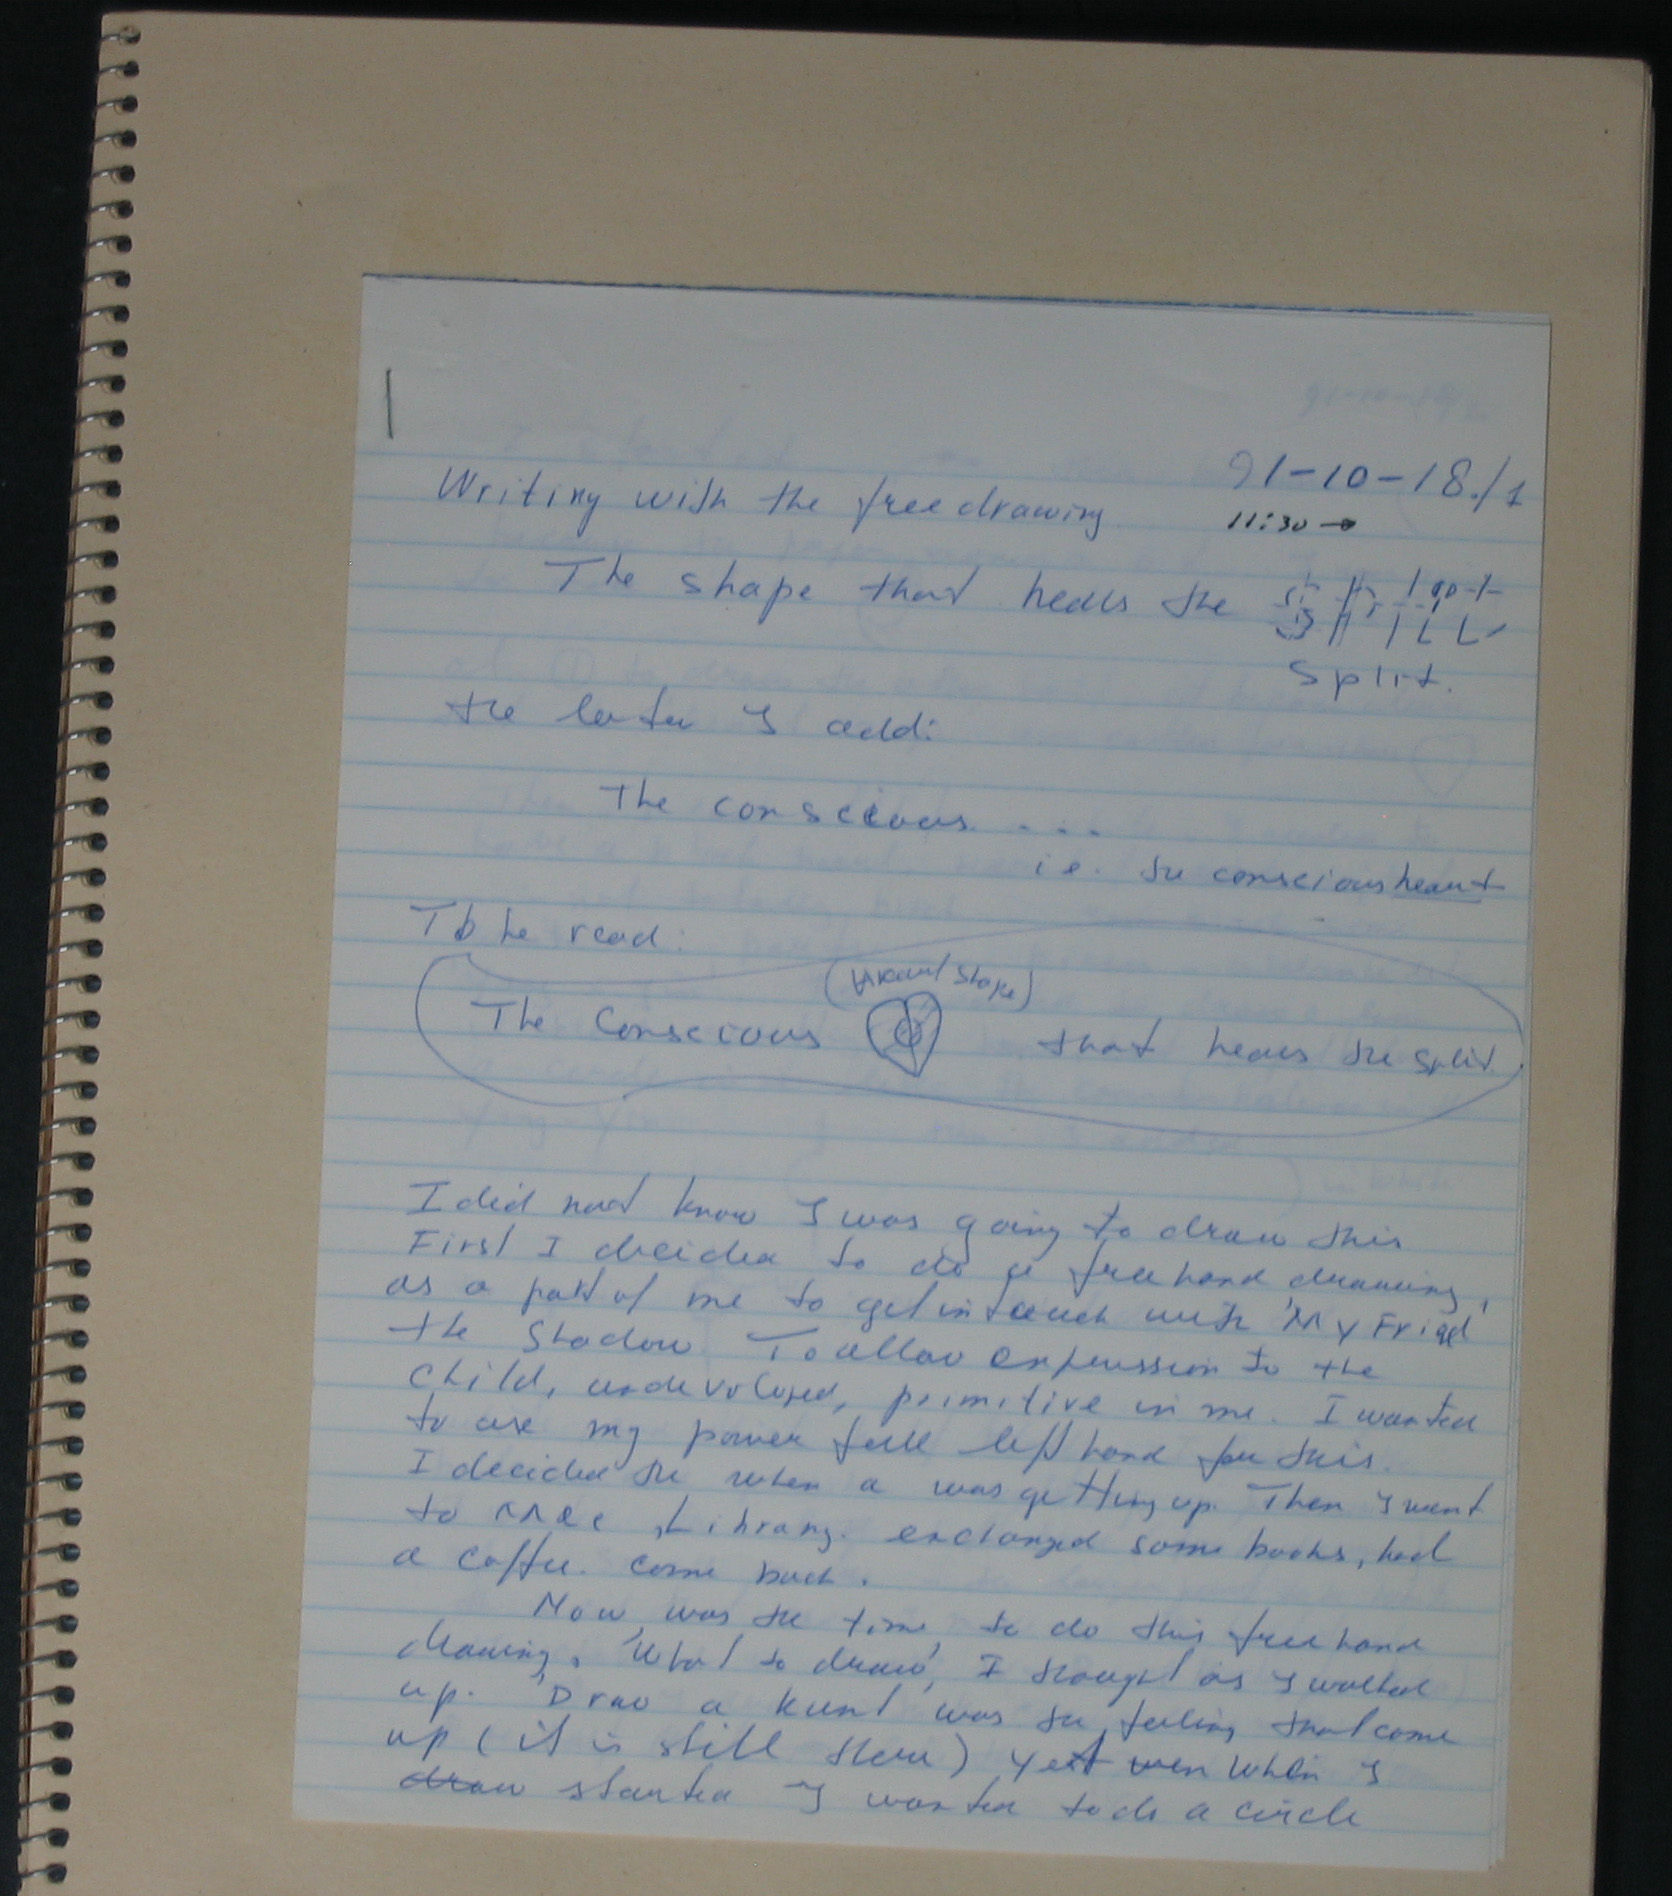 91-10-18./1
Writing with the free drawing
11:30 →
The shape that heals the
Split.
the later I add:
The conscious ....
i.e. the conscious heart
To be read:
(Heart Shape)
The Conscious that heals the split
I did not know I was going to draw this
First I decided to do a free hand drawing,
as a part of me to get in touch with 'My
the Shadow To allow expression to the
child, undeveloped, primitive in me. I wanted
to use my power full left hand for this.
I decided the when a was getting up. Then I went
to Library. exchanged some books, had
a coffee. come back.
Now was the time to do this free hand
drawing. 'What to draw', I thought as I walked
up. 'Draw a kunt was the feeling that come
up (it is still there) yet when I
draw started I wanted to do a circle